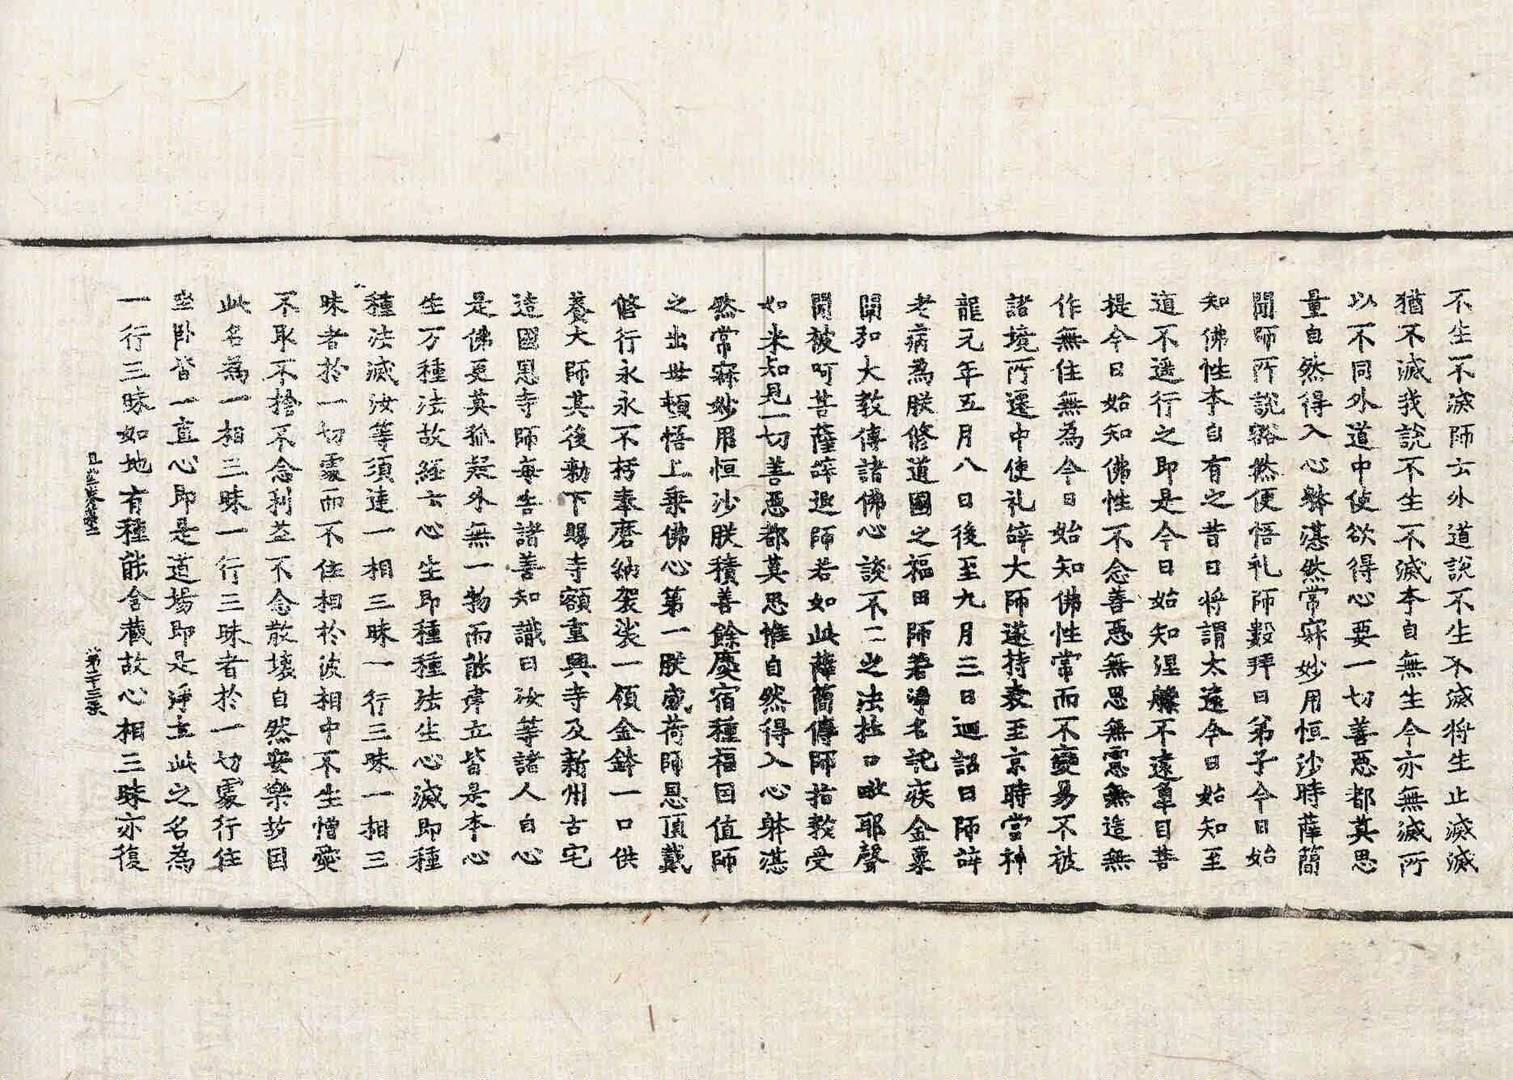 不生不滅師云外道說不生不滅將生止滅滅
猶不滅我說不生不滅本自無生今亦無滅所
以不同外道中使欲得心要一切善惡都莫思
量自然得入心躰湛然常寂妙用恒沙時薛簡
聞師所說豁然便悟礼師數拜曰弟子今日始
知佛性本自有之昔日將謂太遠今日始知至
道不遥行之即是今日始知涅槃不遠觸目菩
提今日始知佛性不念善惡無思無慮無造無
作無住無為今日始知佛性常而不變易不被
諸境所遷中使礼辝大師遂持表至京時當神
龍元年五月八日後至九月三日迴詔曰師辝
老病為朕修道國之福田師若淨名託疾金粟
闡弘大教傳諸佛心談不二之法杜口毗耶聲
聞被呵菩薩辝退師若如此薛簡傳師指教受
如来知見一切善惡都莫思惟自然得入心躰湛
然常寂妙用恒沙朕積善餘慶宿種福因值師
之出世頓悟上乘佛心第一朕感荷師恩頂戴
修行永永不朽奉磨納袈裟一領金鉢一口供
養大師其後勑下賜寺額重興寺及新州古宅
造國恩寺師每告諸善知識曰汝等諸人自心
是佛更莫狐疑外無一物而能建立皆是本心
生万種法故經云心生即種種法生心滅即種
種法滅汝等須達一相三昧一行三昧一相三
昧者於一切處而不住相於彼相中不生憎愛
不取不捨不念利益不念散壞自然安樂故因
此名為一相三昧一行三昧者於一切處行住
坐卧皆一直心即是道場即是淨土此之名為
一行三昧如地有種能含藏故心相三昧亦復
第二十三張